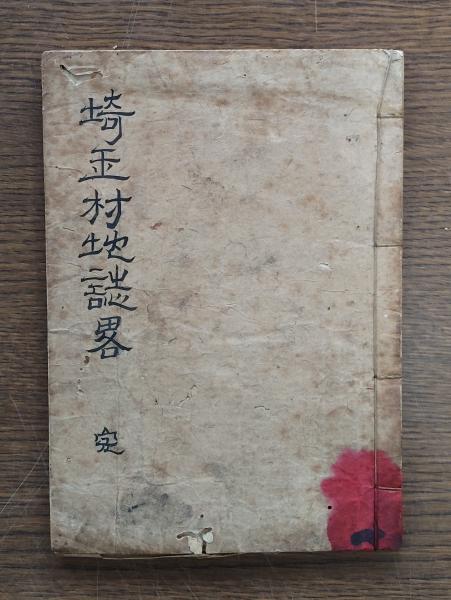 埼玉村地誌畧 完